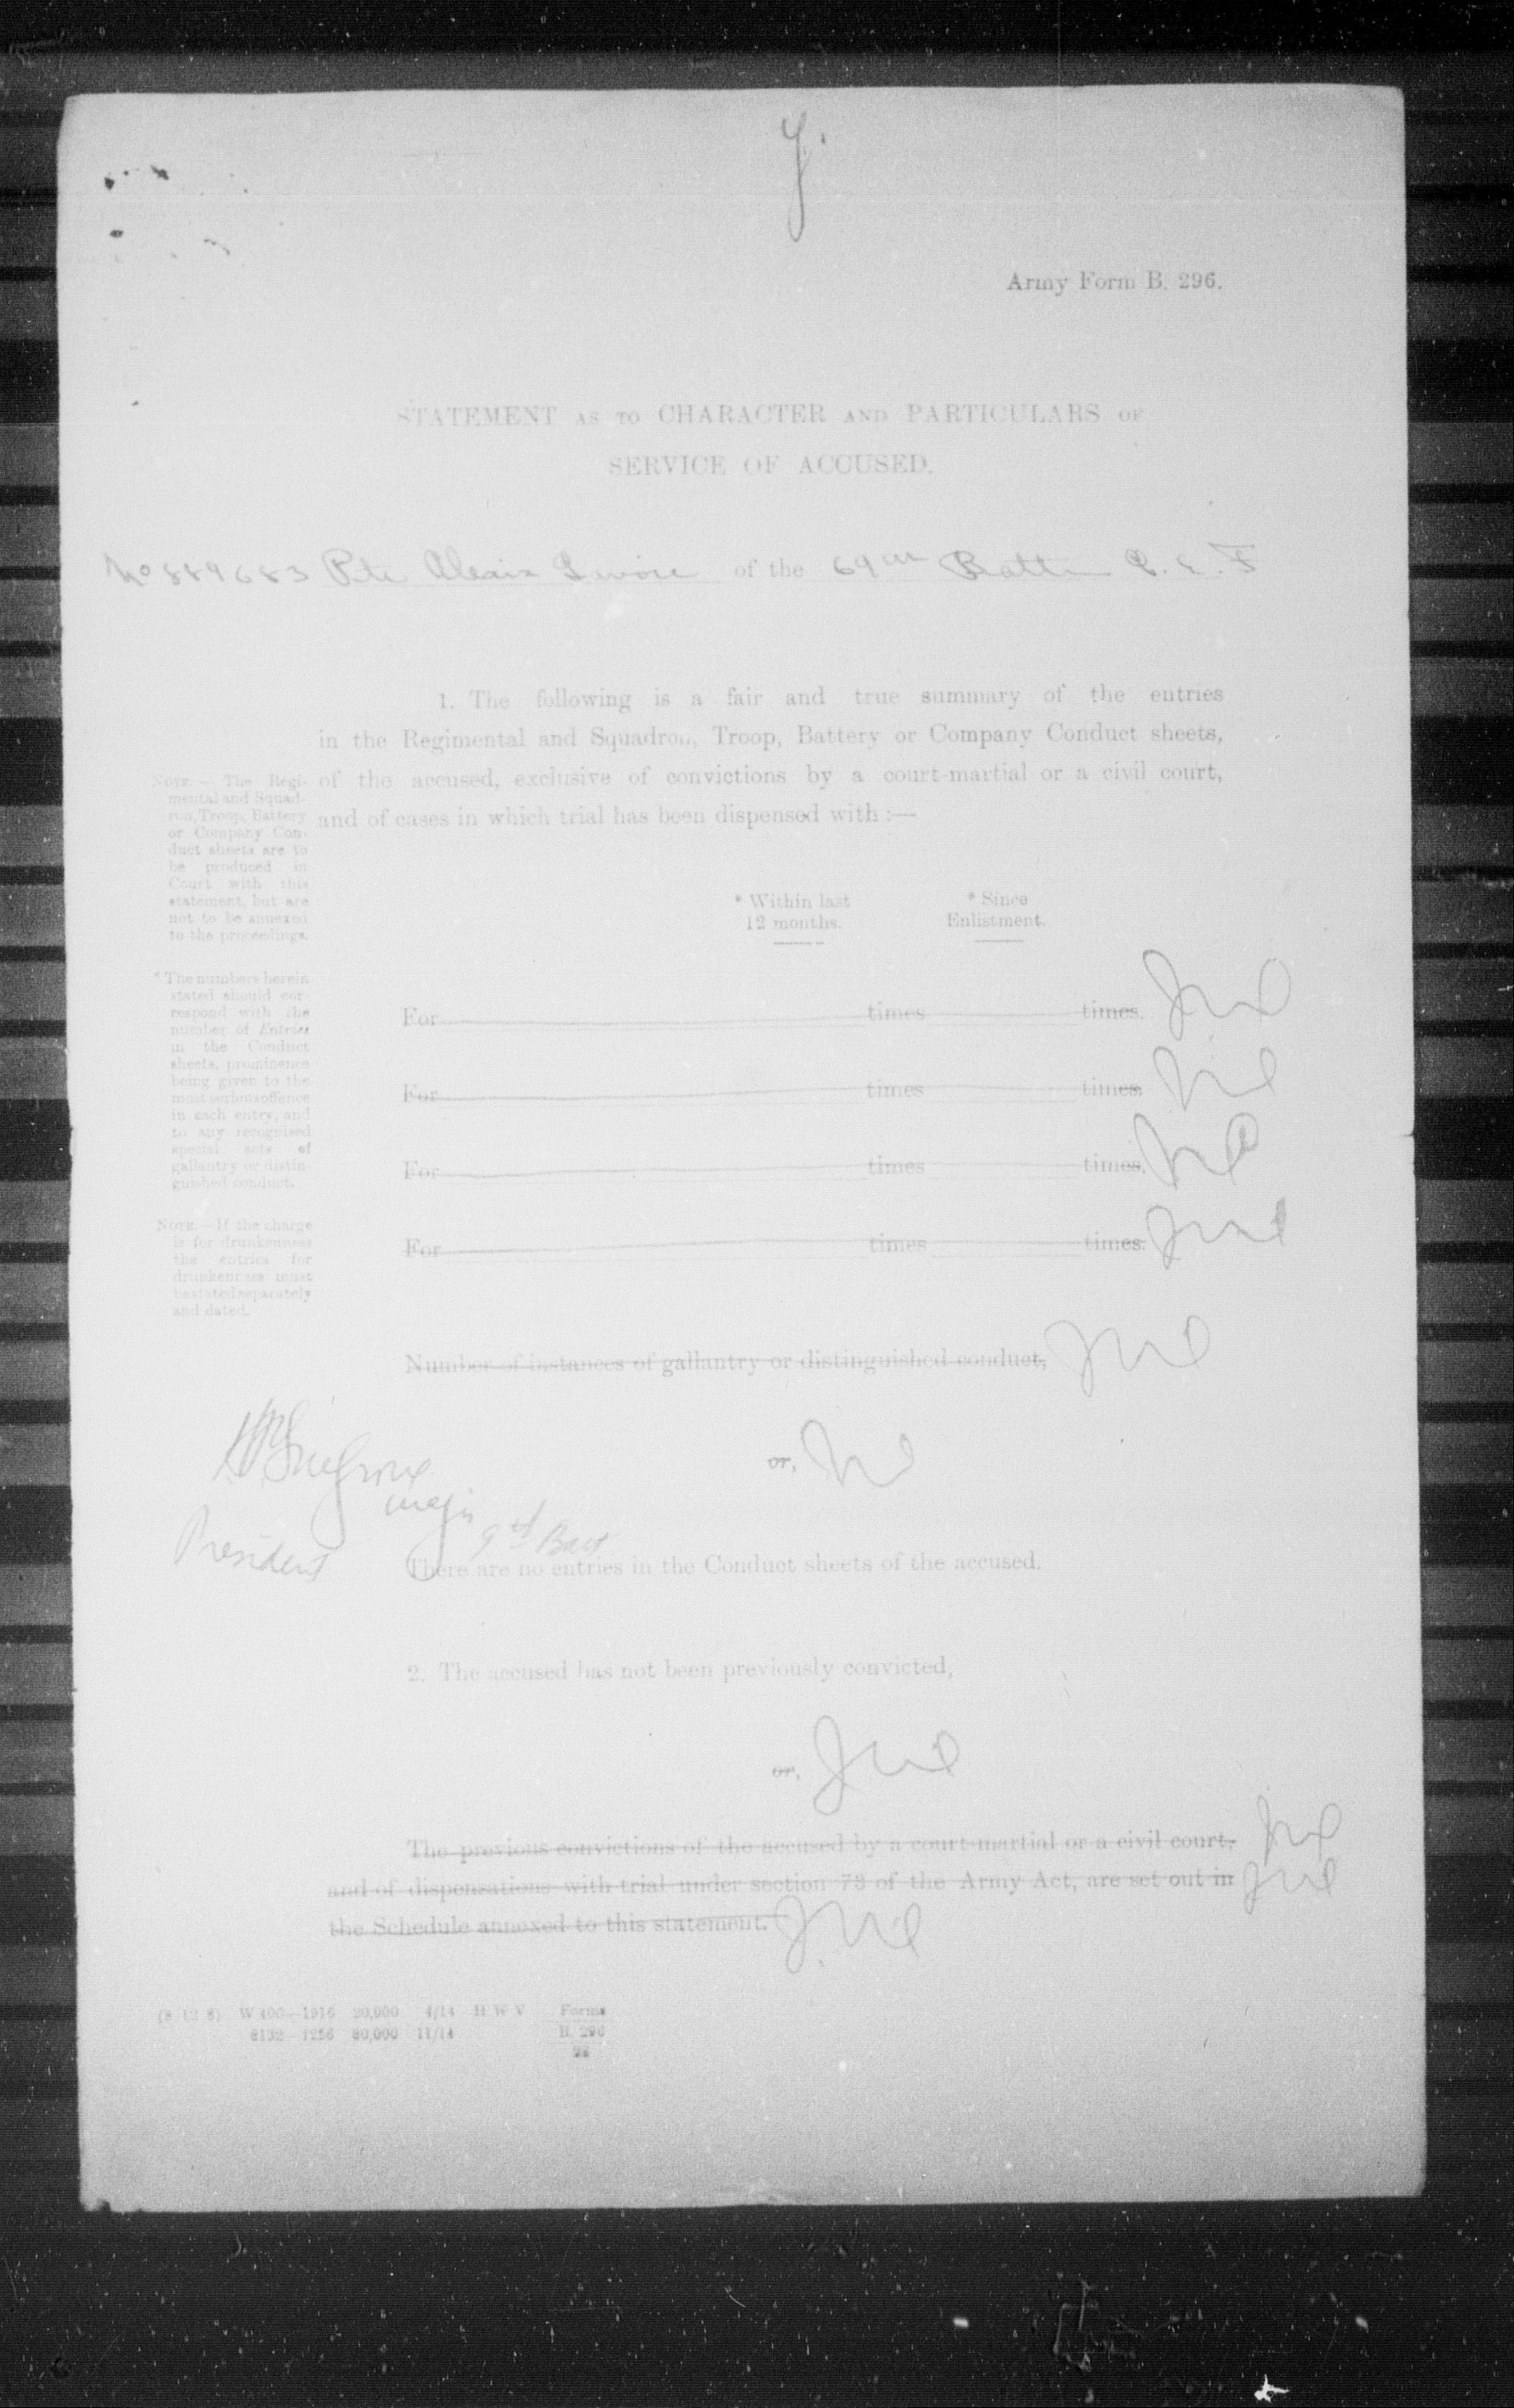 Army Form B. 296.
STATEMENT AS TO CHARACTER AND PARTICULARS OF
SERVICE OF ACCUSED.
No 889683 Pte Alexis of the 69th Battn C.E.F
1. The following is a fair and true summary of the entries
in the Regimental and Squadron, Troop, Battery or Company Conduct sheets,
of the accused, exclusive of convictions by a court-martial or a civil court,
and of cases in which trial has been dispensed with :—
NOTE.—The Regi-
mental and Squad-
ron, Troop, Battery
or Company Con-
duct sheets are to
be produced in
Court with this
statement, but are
not to be annexed
to the proceedings.
* The numbers herein
stated should cor-
respond with the
number of Entries
in the Conduct
sheets, prominence
being given to the
most serious offence
in each entry, and
to any recognised
special acts of
gallantry or distin-
guished conduct.
NOTE.—If the charge
is for drunkenness
the entries for
drunkenness must
be stated separately
and dated.
* Within last
12 months.
* Since
Enlistment.
For times times.
For times times.
For times times.
For times times.
Number of instances of gallantry or distinguished conduct,
or,
President 9th Batt
There are no entries in the Conduct sheets of the accused.
2. The accused has not been previously convicted,
or,
The previous convictions of the accused by a court-martial or a civil court,
and of dispensations with trial under section 73 of the Army Act, are set out in
the Schedule annexed to this statement.
(8 12 8) W 400—1916 20,000 4/14 H W V Forms
8132—1256 80,000 11/14 B. 296